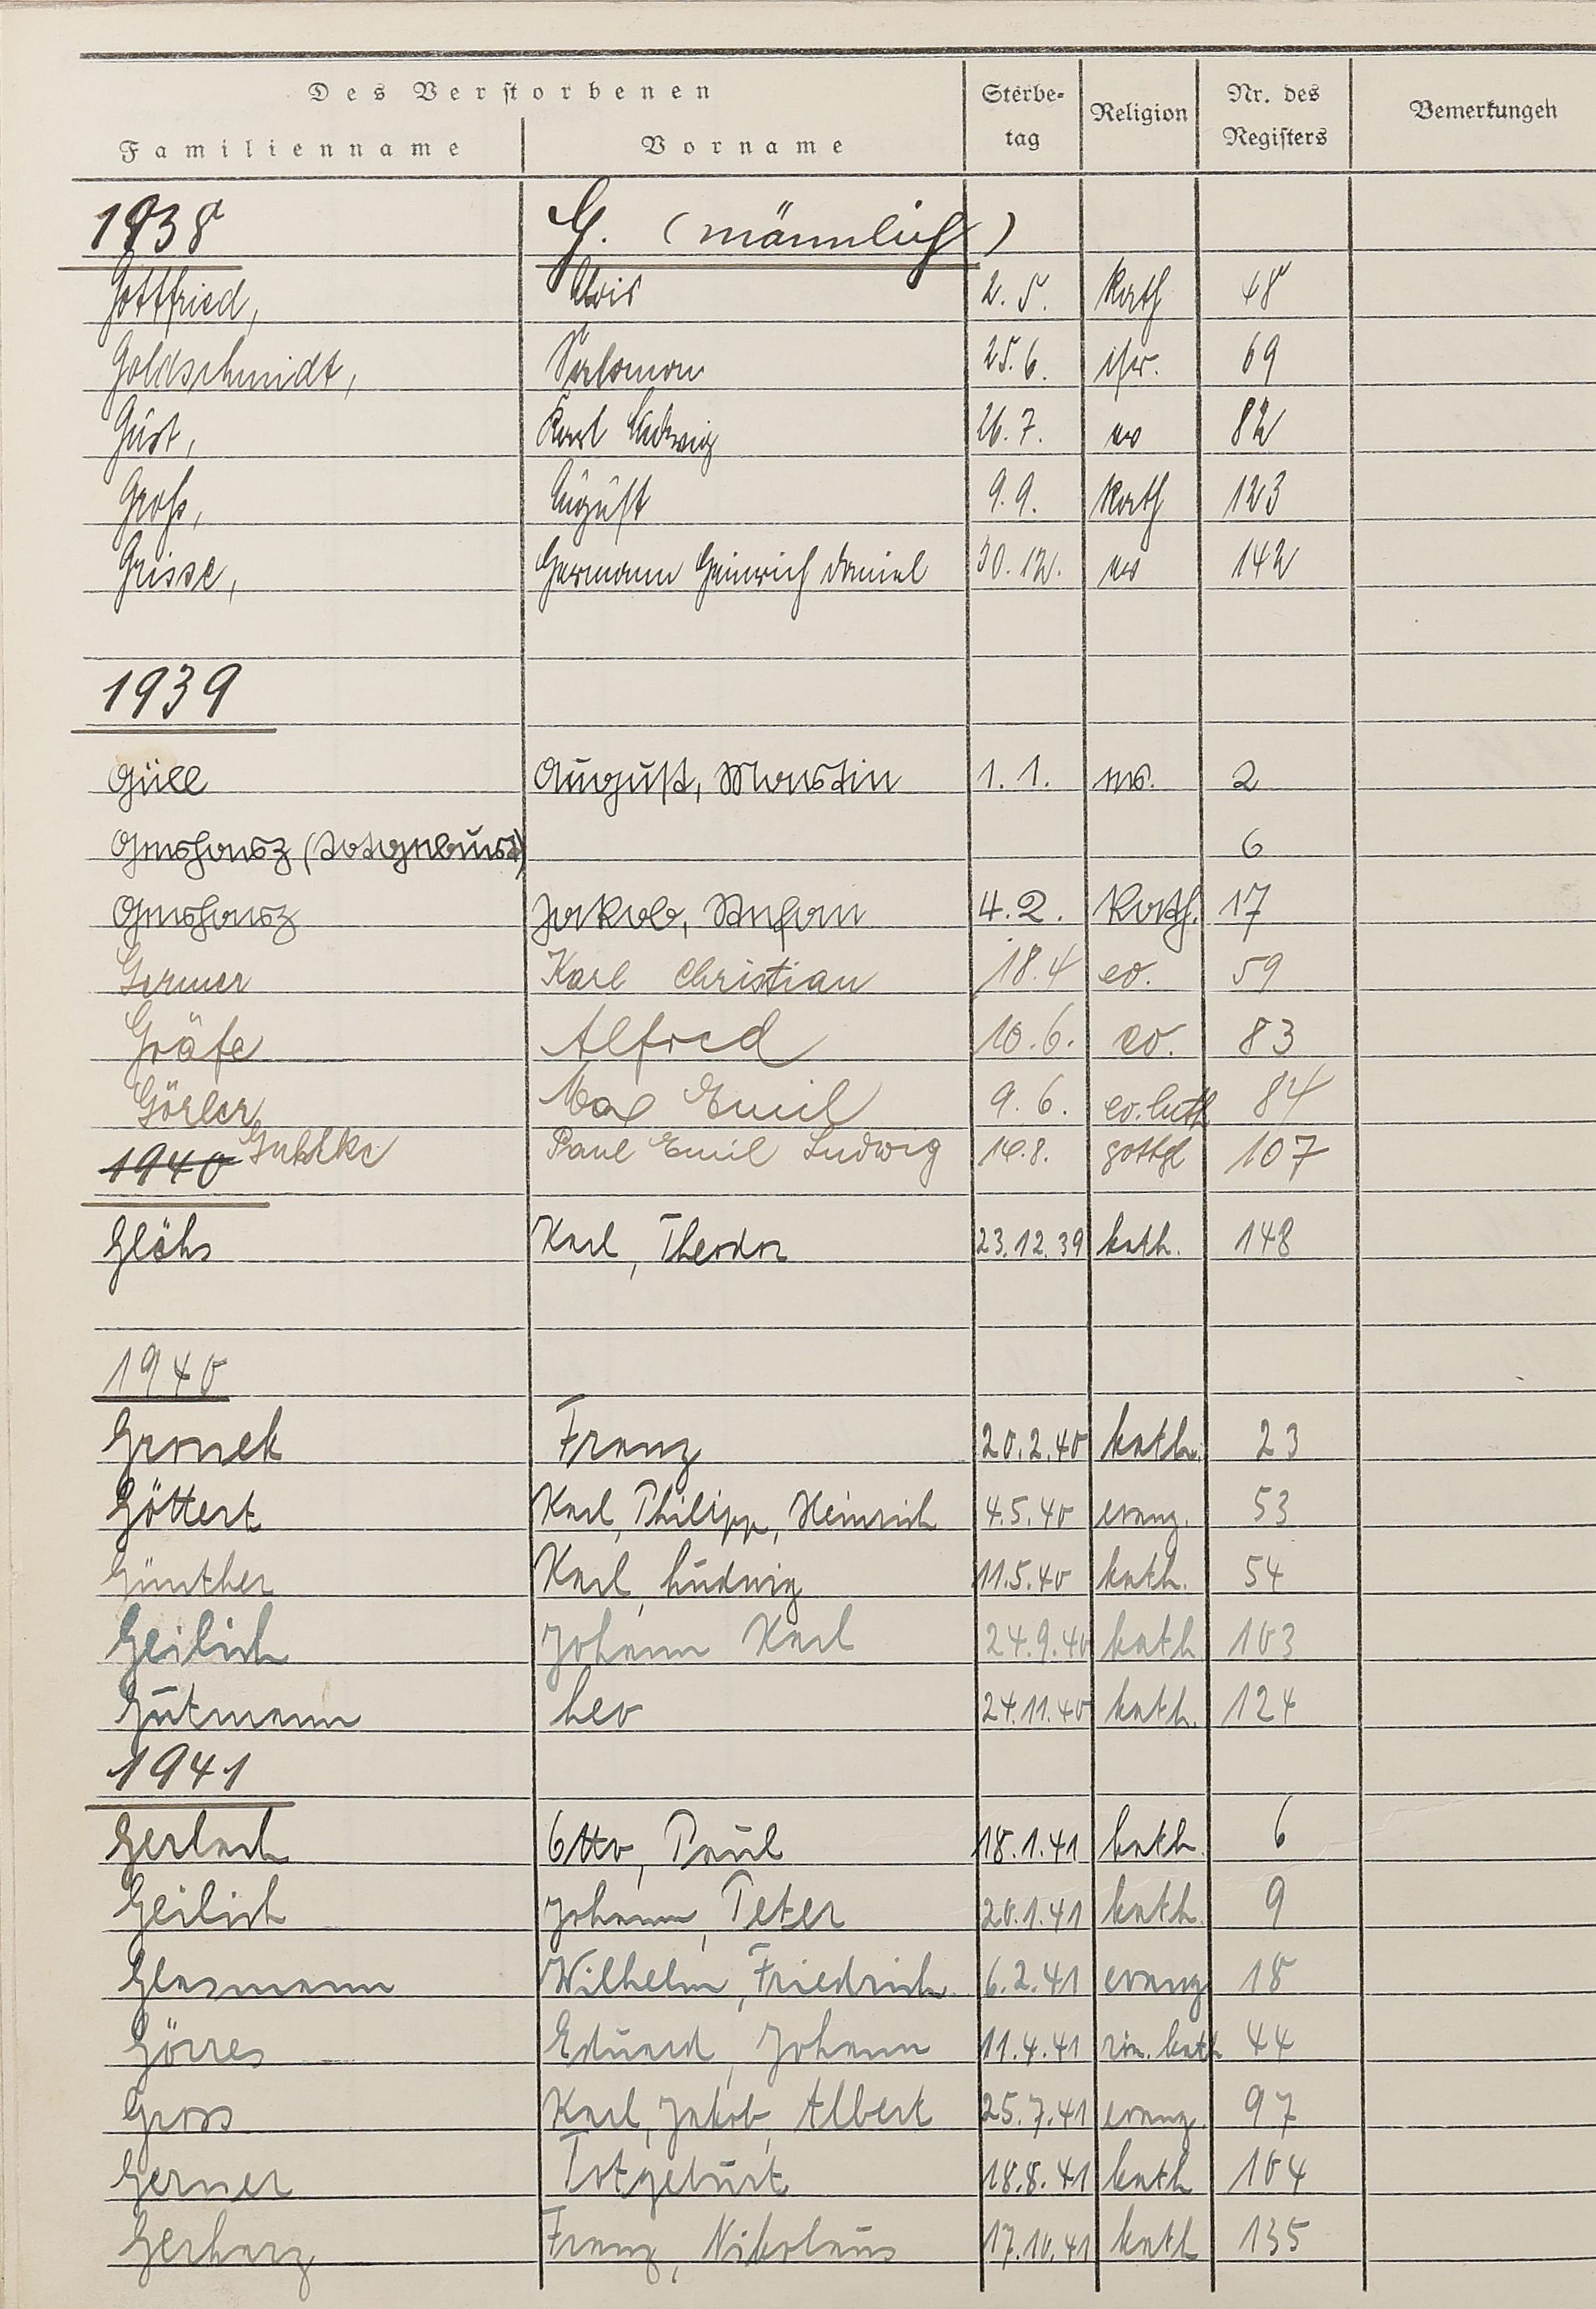 Des Verstorbenen Sterbe- Religion Nr. des Bemerkungen
Familienname Vorname tag Registers
1938 G. (männlich)
Gottfried, Alois 2.5. Kath 48
Goldschmidt, Salomon 25.6. isr. 69
Güst, Karl Ludwig 26.7. ev 82
Groß, August 9.9. Kath 123
Grisse, Hermann Heinrich Daniel 30.12. ev 142
1939
Güll August, Martin 1.1. ev. 2
Gerharz (Totgeburt) 6
Gerharz Jakob, Stefan 4.2. Kath. 17
Germer Karl Christian 18.4 ev. 59
Gräfe Alfred 10.6. ev. 83
Görler Max Emil 9.6. ev. luth 84
1940 Paul Emil Ludwig 10.8. gottgl 107
Glöhs Karl, Theodor 23.12.39 kath. 148
1940
Gronek Franz 20.2.40 kath. 23
Göttert Karl, Philipp, Heinrich 4.5.40 evang. 53
Günther Karl, Ludwig 11.5.40 kath. 54
Geilich Johann Karl 24.9.40 kath 103
Gutmann Leo 24.11.40 kath. 124
1941
Gerlach Otto, Paul 18.1.41 kath. 6
Geilich Johann, Peter 20.1.41 kath. 9
Glasmann Wilhelm, Friedrich 6.2.41 evang 18
Görres Eduard, Johann 11.4.41 röm. kath 44
Gross Karl, Jakob, Albert 25.7.41 evang. 97
Gerner Totgeburt 18.8.41 kath 104
Gerharz Franz, Nikolaus 17.10.41 kath 135